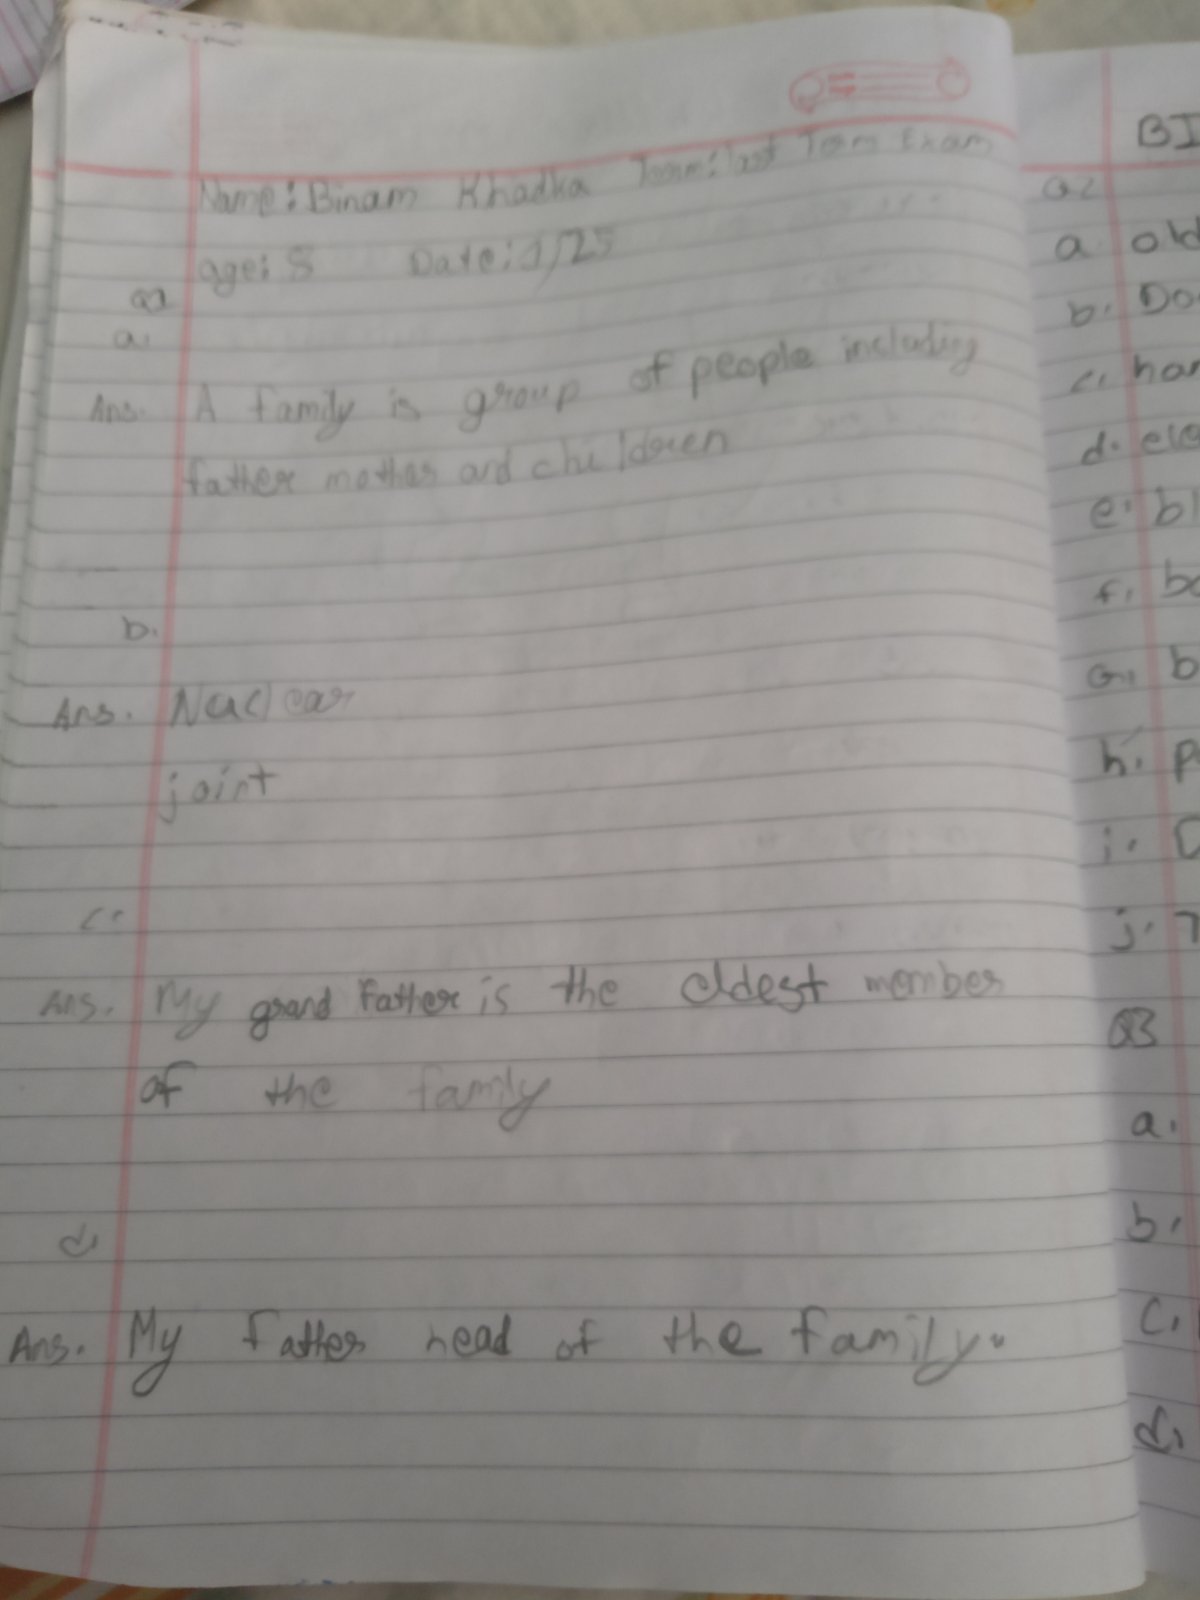 Name: Binam Khadka Term: last Term Exam
age: 8 Date: 1/25
Q1
a.
Ans. A family is group of people including
father mother and children
b.
Ans. Nuclear
joint
c.
Ans. My grand Father is the oldest member
of the family
d.
Ans. My Father head of the family.
BI
Q2
a. old
b. Do
c. har
d. ele
e. bl
f. be
G. b
h. p
i. D
j. T
Q3
a.
b.
C.
d.